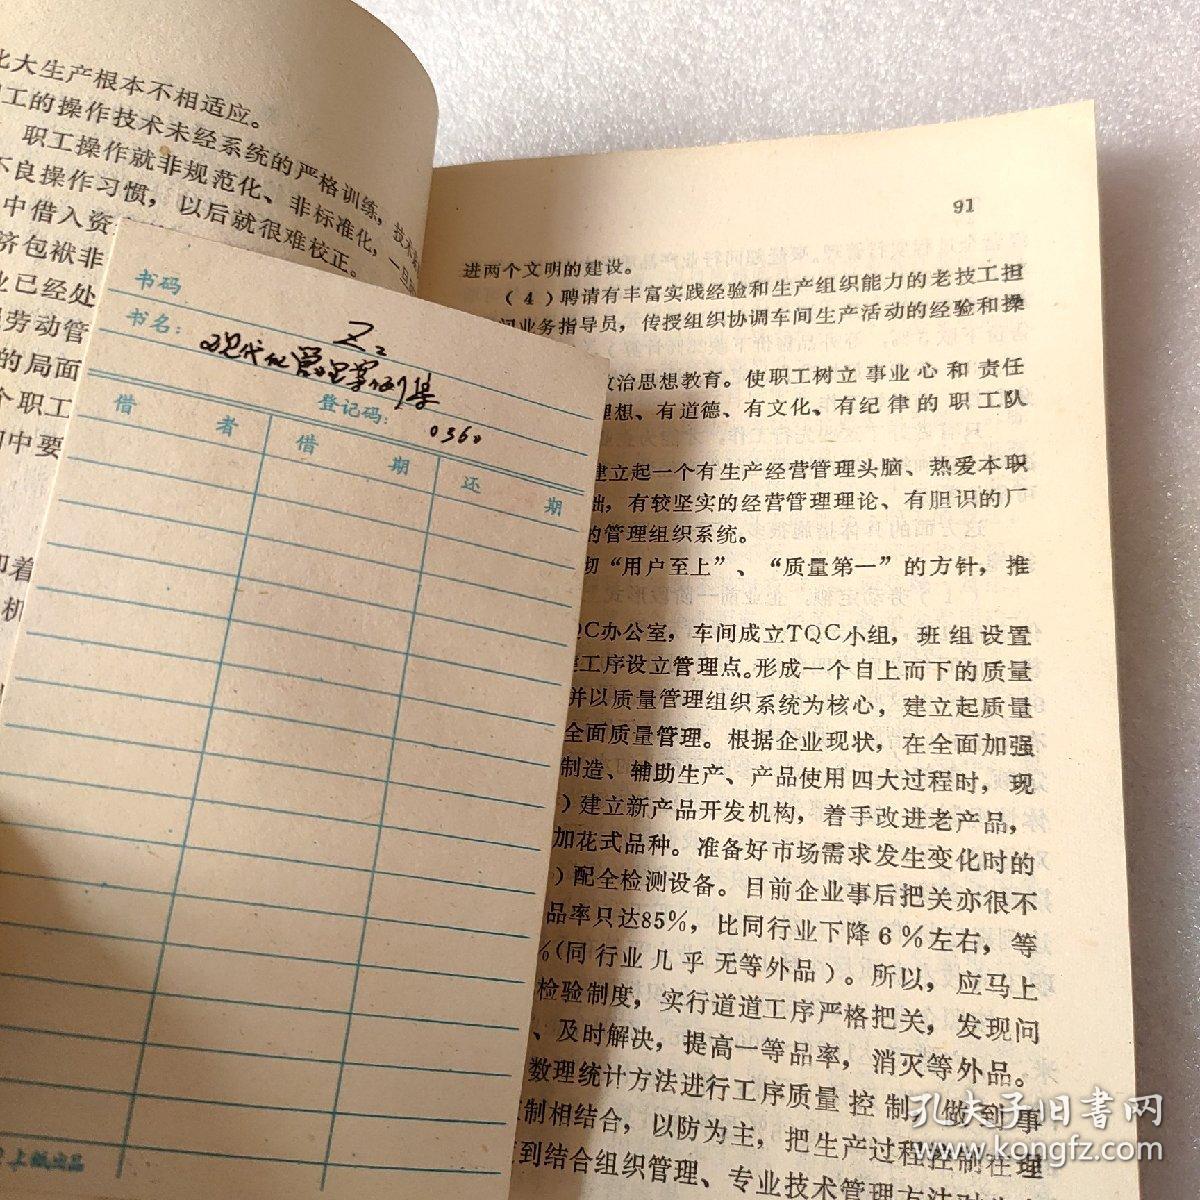 化大生产根本不相适应。
工的操作技术未经系统的严格训练，技术
职工操作就非规范化、非标准化，一旦
不良操作习惯，以后就很难校正。
中借入资
济包袱非
业已经处
劳动管
的局面
个职工
中要
却着
机
书码
Z2
书名：
现代化管理案例集
登记码：
0360
借者
借期
还期
上纸出品
91
进两个文明的建设。
（4）聘请有丰富实践经验和生产组织能力的老技工担
间业务指导员，传授组织协调车间生产活动的经验和操
政治思想教育。使职工树立事业心和责任
理想、有道德、有文化、有纪律的职工队
建立起一个有生产经营管理头脑、热爱本职
础，有较坚实的经营管理理论、有胆识的厂
的管理组织系统。
彻“用户至上”、“质量第一”的方针，推
QC办公室，车间成立TQC小组，班组设置
工序设立管理点。形成一个自上而下的质量
并以质量管理组织系统为核心，建立起质量
全面质量管理。根据企业现状，在全面加强
制造、辅助生产、产品使用四大过程时，现
）建立新产品开发机构，着手改进老产品，
加花式品种。准备好市场需求发生变化时的
）配全检测设备。目前企业事后把关亦很不
品率只达85％，比同行业下降6％左右，等
％（同行业几乎无等外品）。所以，应马上
检验制度，实行道道工序严格把关，发现问
、及时解决，提高一等品率，消灭等外品。
数理统计方法进行工序质量控制，做到事
制相结合，以防为主，把生产过程控制在理
到结合组织管理、专业技术管理方法对
孔夫子旧书网
www.kongfz.com